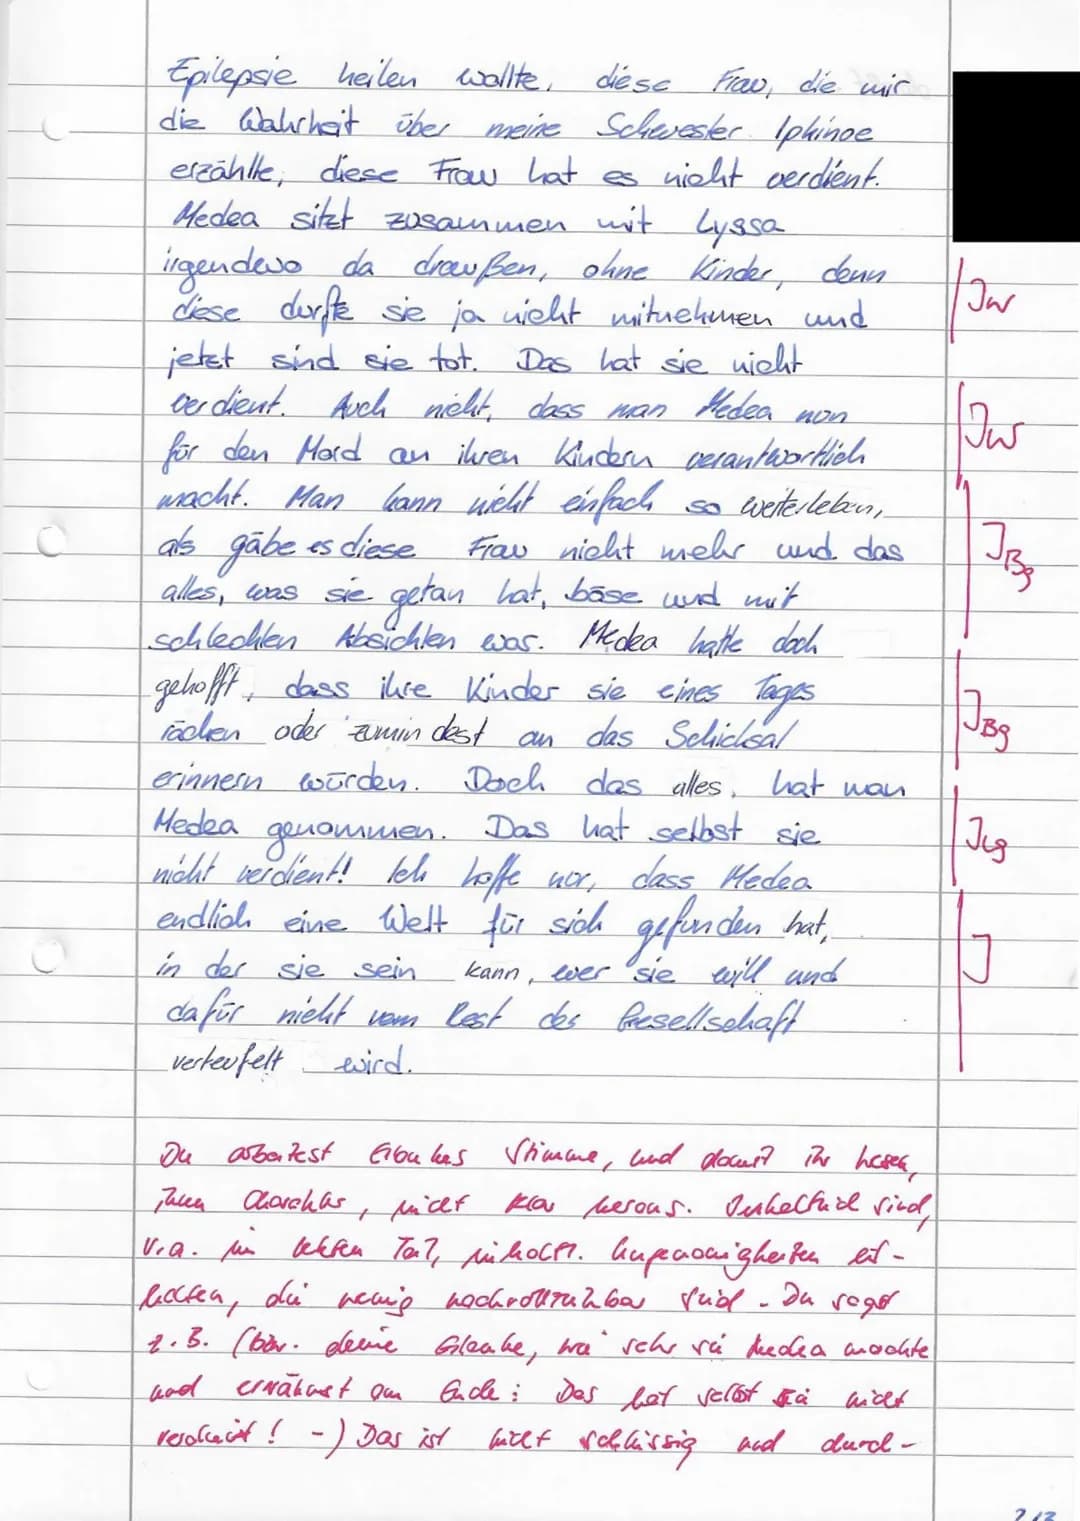 Epilepsie heilen wollte, diese Frau, die mir
die Wahrheit über meine Schwester Iphinoe
erzählte, diese Frau hat es nicht verdient.
Medea sitzt zusammen mit Lyssa
irgendwo da draußen, ohne Kinder, denn
Iw
diese durfte sie ja nicht mitnehmen und
jetzt sind sie tot. Das hat sie nicht
verdient. Auch nicht, dass man Medea nun
Iw
für den Mord an ihren Kindern verantwortlich
macht. Man kann nicht einfach so weiterleben,
als gäbe es diese Frau nicht mehr und das
I Bg
alles, was sie getan hat, böse und mit
schlechten Absichten war. Medea hatte doch
gehofft, dass ihre Kinder sie eines Tages
I Bg
rächen oder zumindest an das Schicksal
erinnern würden. Doch das alles, hat man
Medea genommen. Das hat selbst sie
nicht verdient! Ich hoffe nur, dass Medea
endlich eine Welt für sich gefunden hat,
I
in der sie sein kann, wer sie will und
dafür nicht vom Rest der Gesellschaft
verteufelt wird.
Du arbeitest Glaukes Stimme, und damit ihr Wesen,
ihren Charakter, nicht klar heraus. Inhaltlich sind,
v.a. im letzten Teil, inhaltl. Ungenauigkeiten ent-
halten, die wenig nachvollziehbar sind. Du sagst
z.B. (bzw. deine Glauke, wie sehr sie Medea mochte
und erwähnst am Ende: Das hat selbst sie nicht
verdient! -) Das ist nicht schlüssig und durch-
2/3